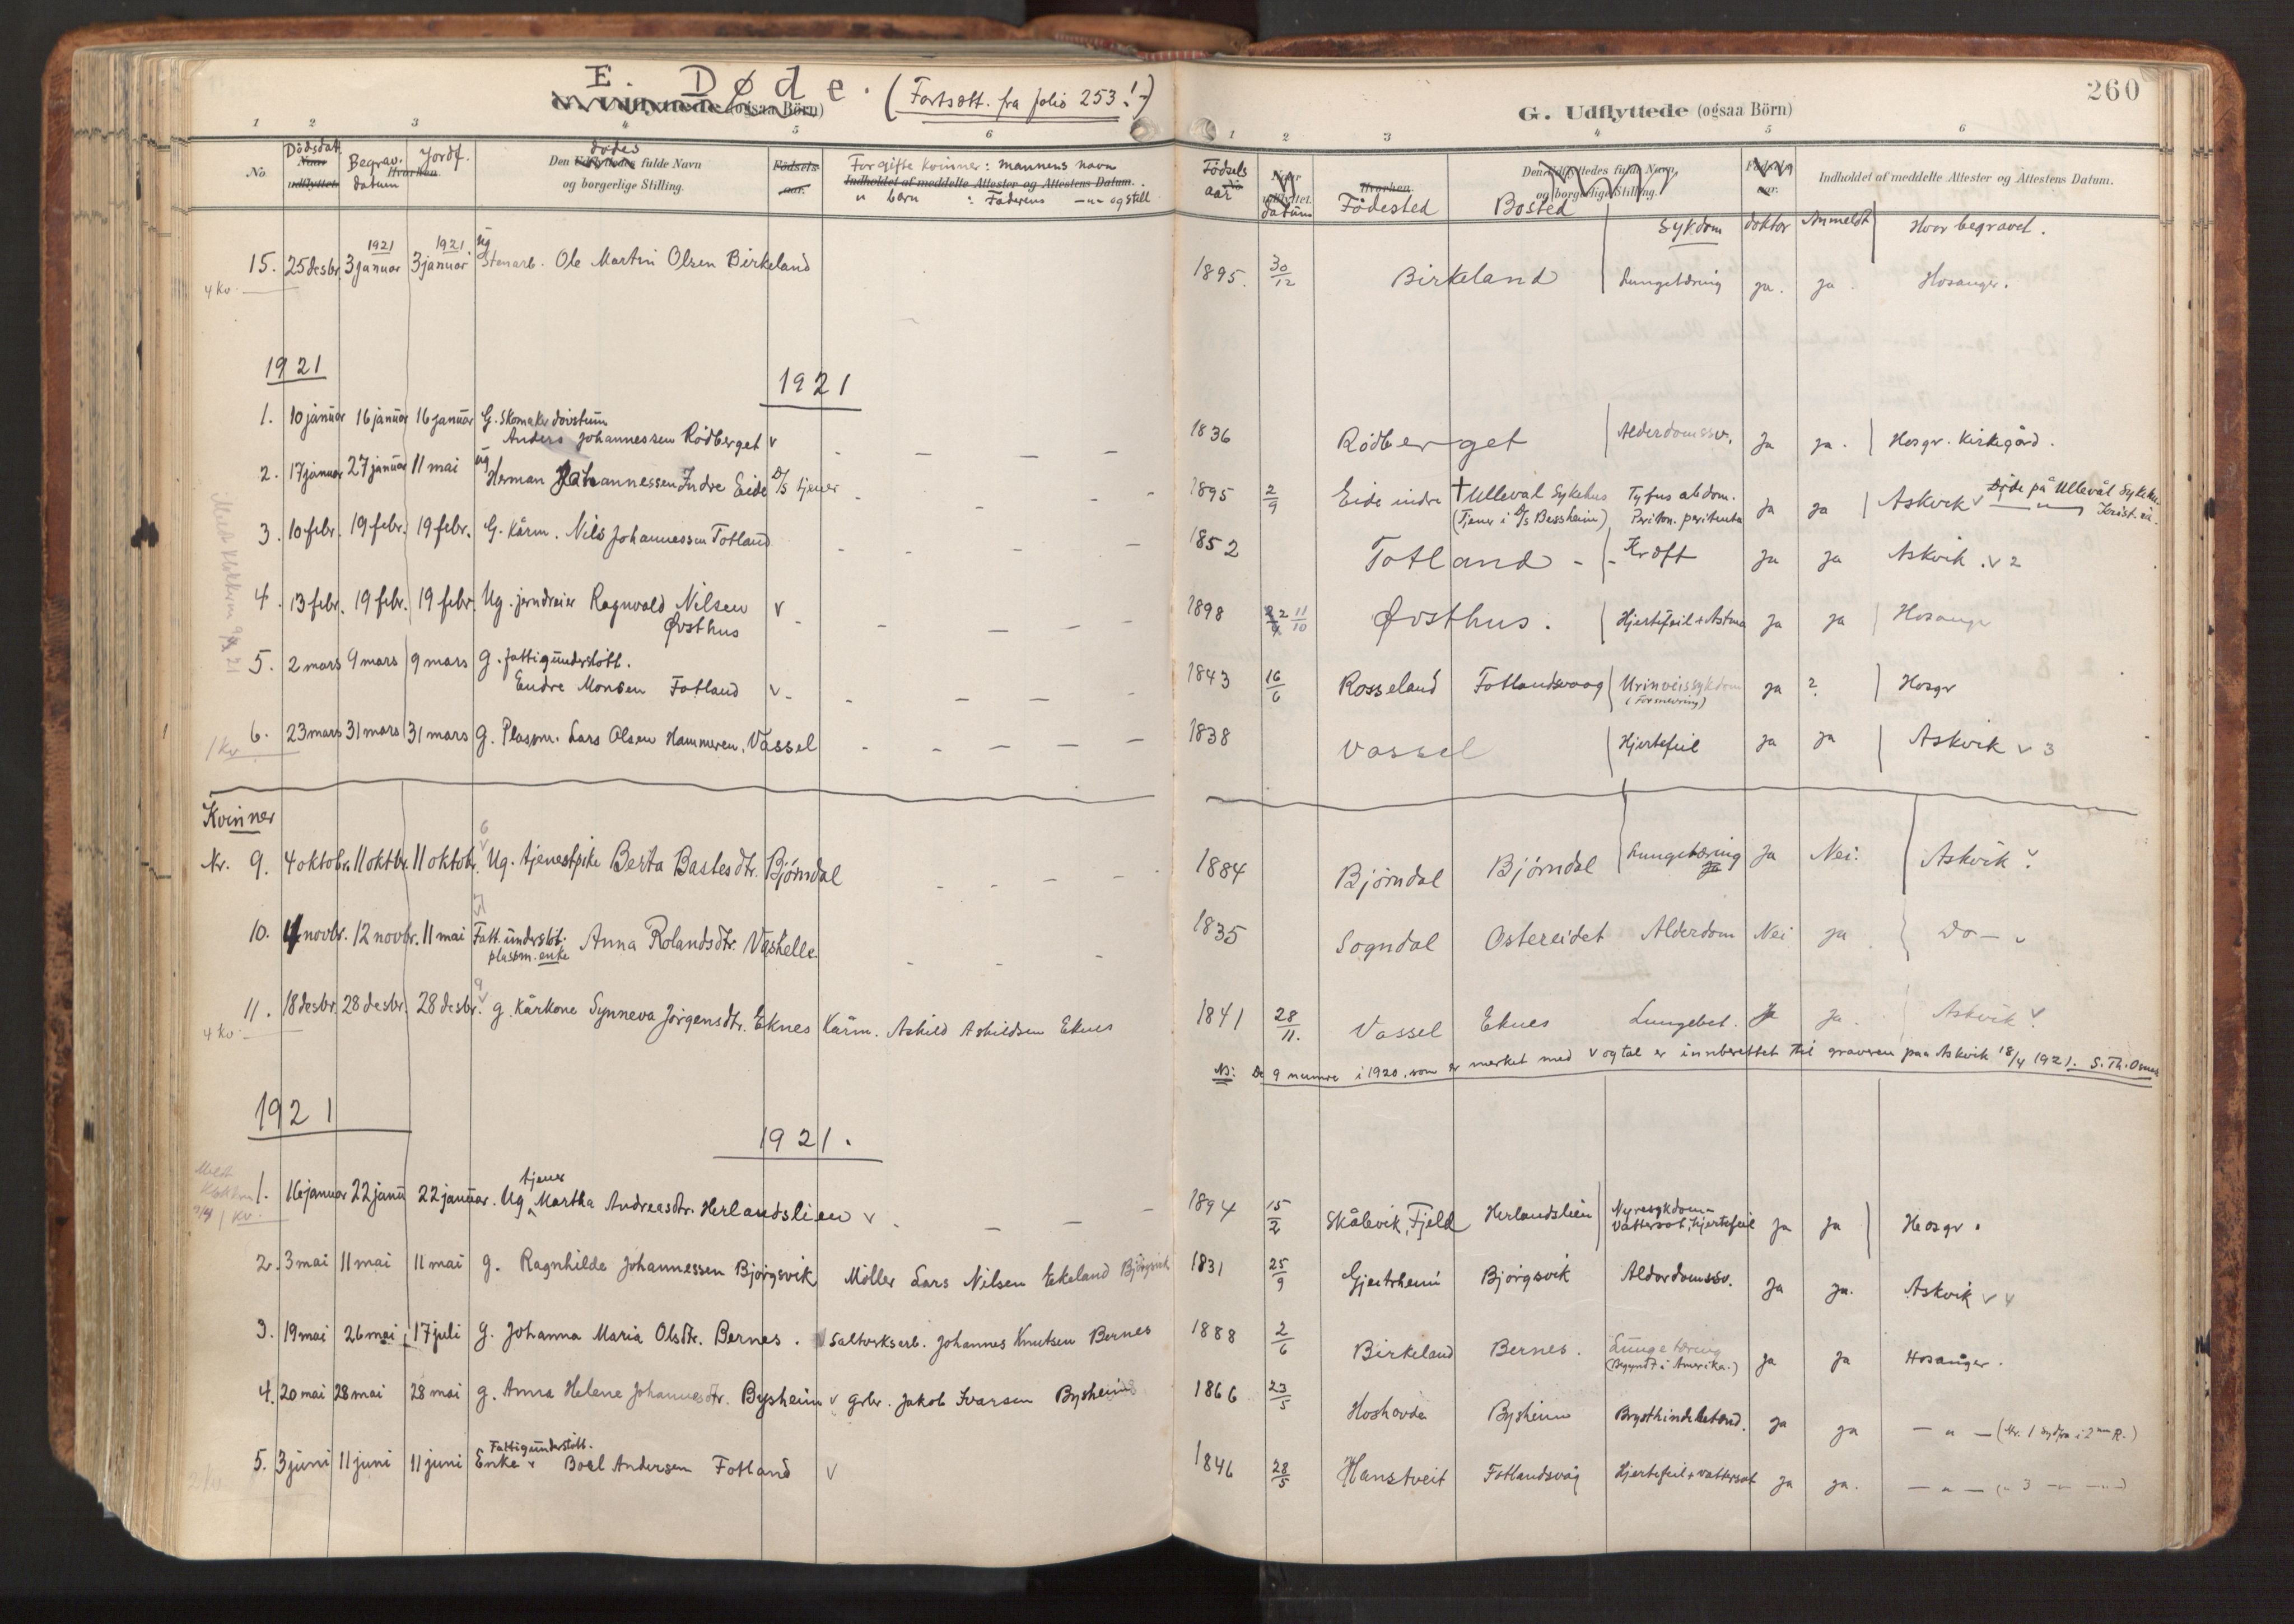 E. Døde. (Fortsatt. fra folio 253!)
(ogsaa Börn)
1 2 3 4 5 6
No Dödsdat. Naar udflyttet. Begrav. datum Jordf. Hvorhen Den Udflyttedes dødes fulde Navn og borgerlige Stilling. Födsels-aar. Forgifte kvinner: mannens navn
Indholdet af meddelte Attester og Attestens Datum.
" barn : Faderens —"— og still
15. 25 desbr. 3 januar 1921 3 januar 1921 ug Stenarb. Ole Martin Olsen Birkeland
4 kv.
1921
1921
1. 10 januar 16 januar 16 januar G. Skomaker
Anders Johannessen Rödberget v
2. 17 januar 27 januar 11 mai ug Herman Johannessen Indre Eide D/S tjener
3. 10 febr. 19 febr. 19 febr. G. Kårm. Nils Johannessen Totland
4. 13 febr. 19 febr. 19 febr. Ug. jerndreier Ragnvald Nilsen v
Øvsthus
5. 2 mars 9 mars 9 mars g. fattigunderstött.
Endre Monsen Fotland v
6. 23 mars 31 mars 31 mars g. Plassm. Lars Olsen Hammeren, Vassel
1 kv
Kvinner
Nr. 9. 4 oktobr. 11 oktbr. 11 oktobr. Ug. tjenestpike Berta Bastesdtr. Bjørndal
10. 4 novbr. 12 novbr. 11 mai Fatt. understöt. Anna Rolandsdtr. Vaskelle.
plassm. enke
11. 18 desbr. 28 desbr. 28 desbr. g. Kårkone Synneva Jörgensdtr. Eknes Kårm. Askild Askildsen Eknes
4 kv.
1921
1921.
1. 16 januar 22 janu 22 januar. Ug. tjener Martha Andreasdtr. Herlandslien v
1 kv.
2. 3 mai 11 mai 11 mai g. Ragnhilde Johannessen Bjørgsvik Möller Lars Nilsen Eikeland Bjørgsvik
3. 19 mai 26 mai 17 juli g. Johanna Maria Olsdtr. Bernes. Saltverksarb. Johannes Knutsen Bernes
4. 20 mai 28 mai 28 mai g. Anna Helene Johannesdtr. Bysheim v grbr. Jakob Ivarsen Bysheim
5. 3 juni 11 juni 11 juni Fattigunderstött.
Enke v Boel Andersen Fotland v
2 kv.
260
G. Udflyttede (ogsaa Börn)
1 2 3 4 5 6
Födsels aar Naar udflyttet. datum Hvorhen Födested Den Udflyttedes fulde Navn og borgerlige Stilling. Bosted Fødsels-aar. Indholdet af meddelte Attester og Attestens Datum.
Sykdom doktor Anmeldt Hvor begravet.
1895. 30/12 Birkeland Lungetæring ja. ja. Hosanger.
1836 Rödberget Alderdomssv. Ja ja. Hosgr. Kirkegård.
1895 2/9 Eide indre † Ulleval Sykehus Tyfus abdom. Ja ja Askvik v Døde på Ullevål Sykehu.
(Tjener i D/S Bessheim)
1852 Totland - Kræft ja ja Askvik. v 2
1898 11/10 Øvsthus. Hjertefeil + Astma ja ja Hosanger
1843 16/6 Rosseland Fotlandsvaag Urinveissykdom ja ? Hosgr
(Forsnevring)
1838 Vassel Hjertefeil ja ja Askvik v 3
1884 Bjørndal Bjørndal Lungetæring Ja Nei. Askvik v
1835 Sogndal Ostereidet Alderdom Nei ja Do— v
1841 28/11. Vassel Eknes Lungebet. Ja Ja. Askvik v
NB: De 9 numre i 1920, som er merket med v og tal er innberettet til graveren paa Askvik 18/4 1921. S. Th.
1894 15/2 Skålevik, Fjeld Herlandslien Nyresykdom-
Vattersot, hjertefeil ja ja Hosgr.
1831 25/9 Gjertrheim Bjørgsvik Alderdomssv. ja ja. Askvik v 4
1888 2/6 Birkeland Bernes. Lungetæring ja ja Hosanger.
(Begyndt i Amerika.)
1866 23/5 Hoshovde Bysheim Brysthindebetend. ja ja — " — (Nr. 1 sydfra i 2nen R.)
1846 28/5 Hanstveit Fotlandsvåg Hjertefeil + vattersot ja ja. — " — (" 3 —"— —"—)